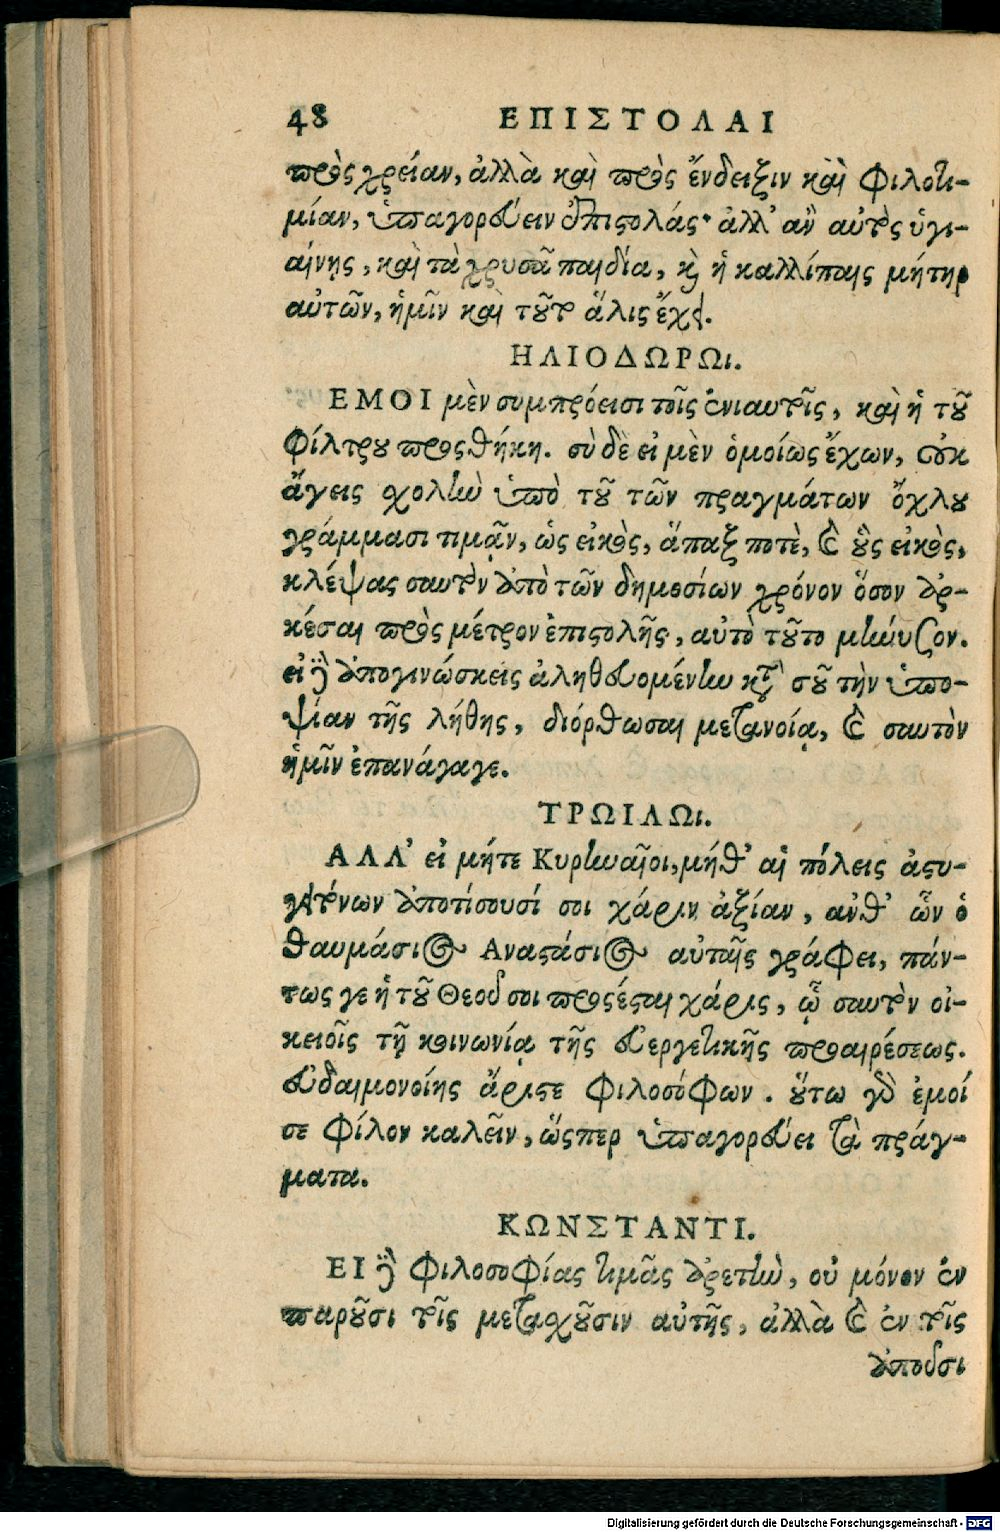 48 ΕΠΙΣΤΟΛΑΙ
πρὸς χρείαν, ἀλλὰ καὶ πρὸς ἔνδειξιν καὶ φιλοτι-
μίαν, ὑπαγορεύειν ἐπιστολάς· ἀλλ' ἂν αὐτὸς ὑγι-
αίνῃς, καὶ τὰ χρυσᾶ παιδία, καὶ ἡ καλλίπαις μήτηρ
αὐτῶν, ἡμῖν καὶ τοῦτο ἅλις ἔχει.
ΗΛΙΟΔΩΡΩι.
ΕΜΟΙ μὲν συμπρόεισι τοῖς ἐνιαυτοῖς, καὶ ἡ τοῦ
φίλτρου προσθήκη. σὺ δὲ εἰ μὲν ὁμοίως ἔχων, οὐκ
ἄγεις σχολὴν ὑπὸ τοῦ τῶν πραγμάτων ὄχλου
γράμμασι τιμᾷν, ὡς εἰκὸς, ἅπαξ ποτὲ, καὶ οὓς εἰκὸς,
κλέψας σαυτὸν ἀπὸ τῶν δημοσίων χρόνον ὅσον ἀρ-
κέσαι πρὸς μέτρον ἐπιστολῆς, αὐτὸ τοῦτο μήνυσον.
εἰ δὲ ἀπογινώσκεις ἀληθευομένην κατὰ σοῦ τὴν ὑπο-
ψίαν τῆς λήθης, διόρθωσαι μετανοίᾳ, καὶ σαυτὸν
ἡμῖν ἐπανάγαγε.
ΤΡΩΙΛΩι.
ΑΛΛ' εἰ μήτε Κυρηναῖοι, μήθ' αἱ πόλεις ἀστυ-
γειτόνων ἀποτίσουσί σοι χάριν ἀξίαν, ἀνθ' ὧν ὁ
θαυμάσιος Αναστάσιος αὐταῖς γράφει, πάν-
τως γε ἡ τοῦ Θεοῦ σοι προσέσται χάρις, ᾧ σαυτὸν οἰ-
κειοῖς τῇ κοινωνίᾳ τῆς εὐεργετικῆς προαιρέσεως.
εὐδαιμονοίης ἄριστε φιλοσόφων. οὕτω γὰρ ἐμοί
σε φίλον καλεῖν, ὥσπερ ὑπαγορεύει τὰ πράγ-
ματα.
ΚΩΝΣΤΑΝΤΙ.
ΕΙ δὲ φιλοσοφίας τιμᾷς ἀρετὴν, οὐ μόνον ἐν
παροῦσι τοῖς μετασχοῦσιν αὐτῆς, ἀλλὰ καὶ ἐν τοῖς
ἀποῦσι
Digitalisierung gefördert durch die Deutsche Forschungsgemeinschaft - DFG